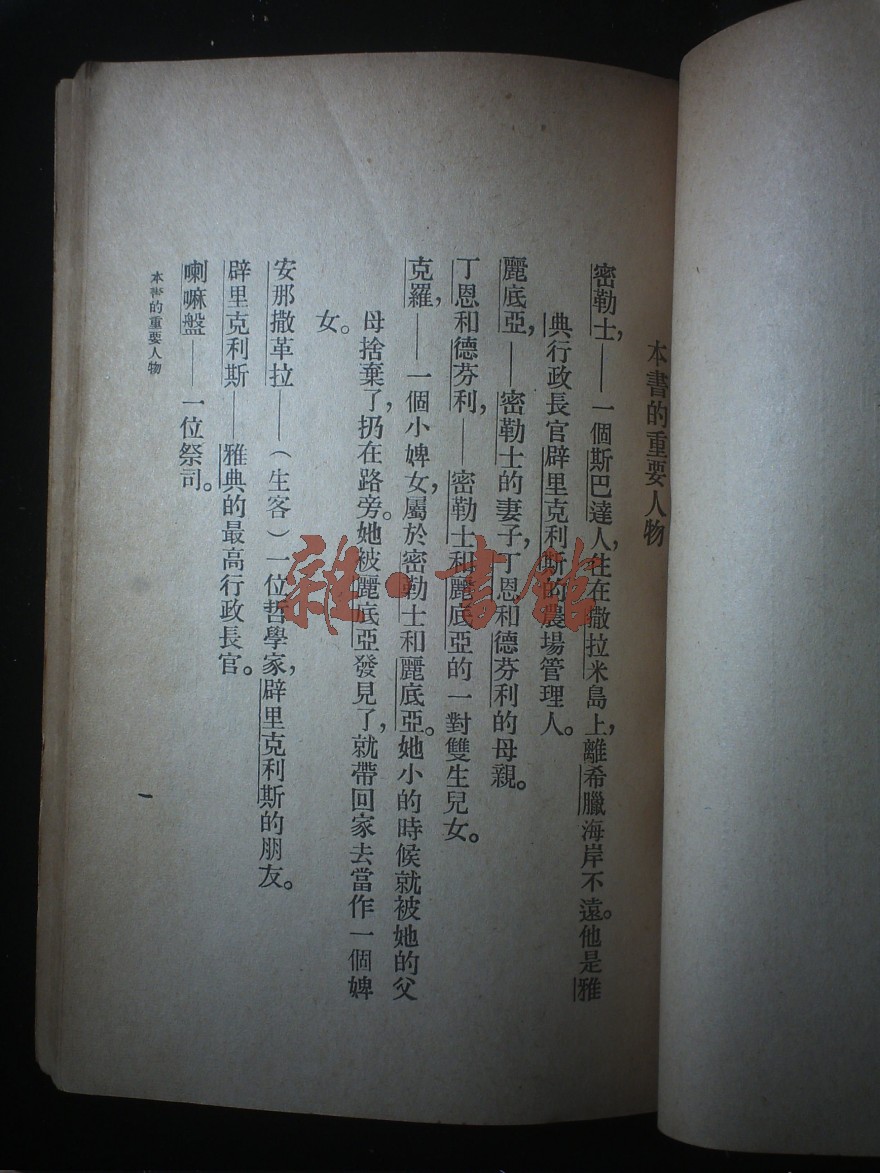 本書的重要人物
密勒士,——一個斯巴達人,生在撒拉米島上,離希臘海岸不遠。他是雅
典行政長官辟里克利斯的農場管理人。
麗底亞,——密勒士的妻子,丁恩和德芬利的母親。
丁恩和德芬利,——密勒士和麗底亞的一對雙生兒女。
克羅,——一個小婢女,屬於密勒士和麗底亞。她小的時候就被她的父
母捨棄了,扔在路旁。她被麗底亞發見了,就帶回家去當作一個婢
女。
安那撒革拉——(生客)一位哲學家,辟里克利斯的朋友。
辟里克利斯——雅典的最高行政長官。
喇嘛盤——一位祭司。
本書的重要人物
一
雜·書館